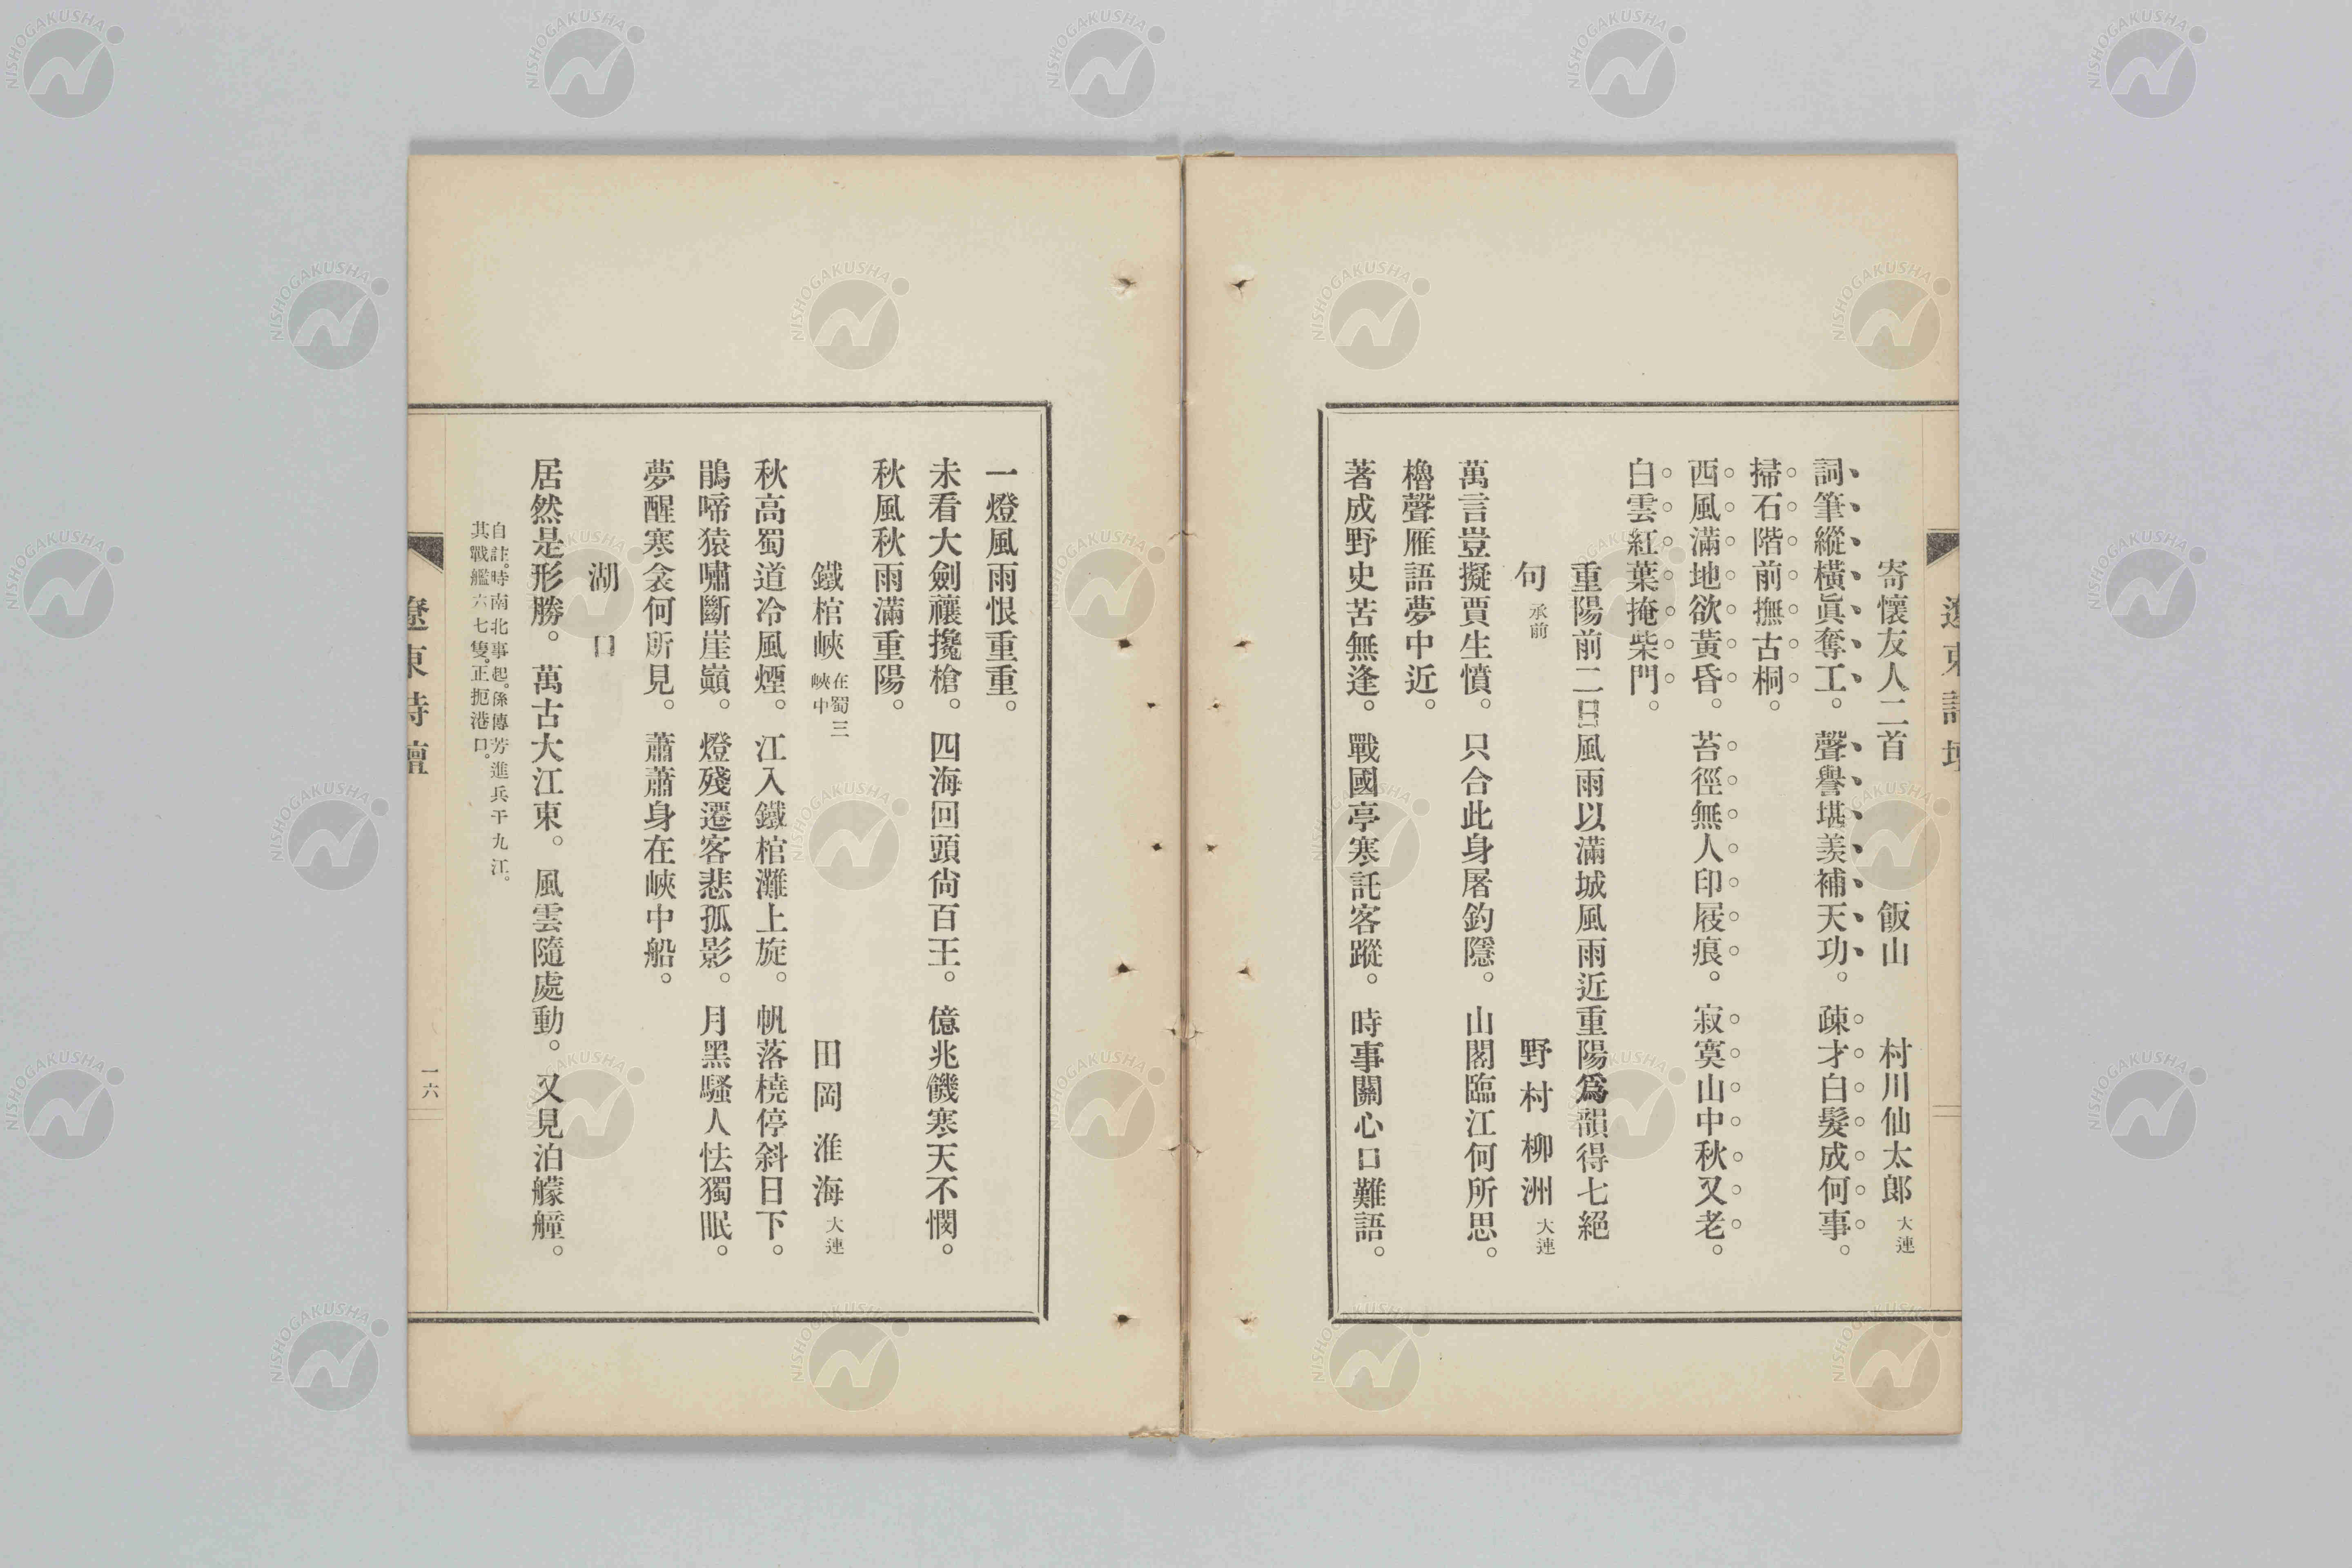 遼東詩壇
寄懷友人二首 飯山 村川仙太郎 大連
詞筆縱橫眞奪工。聲譽堪羨補天功。疎才白髮成何事。
掃石階前撫古桐。
西風滿地欲黃昏。苔徑無人印屐痕。寂寞山中秋又老。
白雲紅葉掩柴門。
重陽前二日風雨以滿城風雨近重陽爲韻得七絕
句 承前 野村柳洲 大連
萬言豈擬賈生憤。只合此身屠釣隱。山閣臨江何所思。
櫓聲雁語夢中近。
著成野史苦無逢。戰國亭寒託客蹤。時事關心口難語。
一燈風雨恨重重。
未看大劍禳攙槍。四海回頭尙百王。億兆饑寒天不憫。
秋風秋雨滿重陽。
鐵棺峽 在蜀三峽中 田岡淮海 大連
秋高蜀道冷風煙。江入鐵棺灘上旋。帆落橈停斜日下。
鵑啼猿嘯斷崖巓。燈殘遷客悲孤影。月黑騷人怯獨眠。
夢醒寒衾何所見。蕭蕭身在峽中船。
湖口
居然是形勝。萬古大江東。風雲隨處動。又見泊艨艟。
自註。時南北事起。係傳芳進兵于九江。
其戰艦六七隻。正扼港口。
遼東詩壇
一六
NISHOGAKUSHA